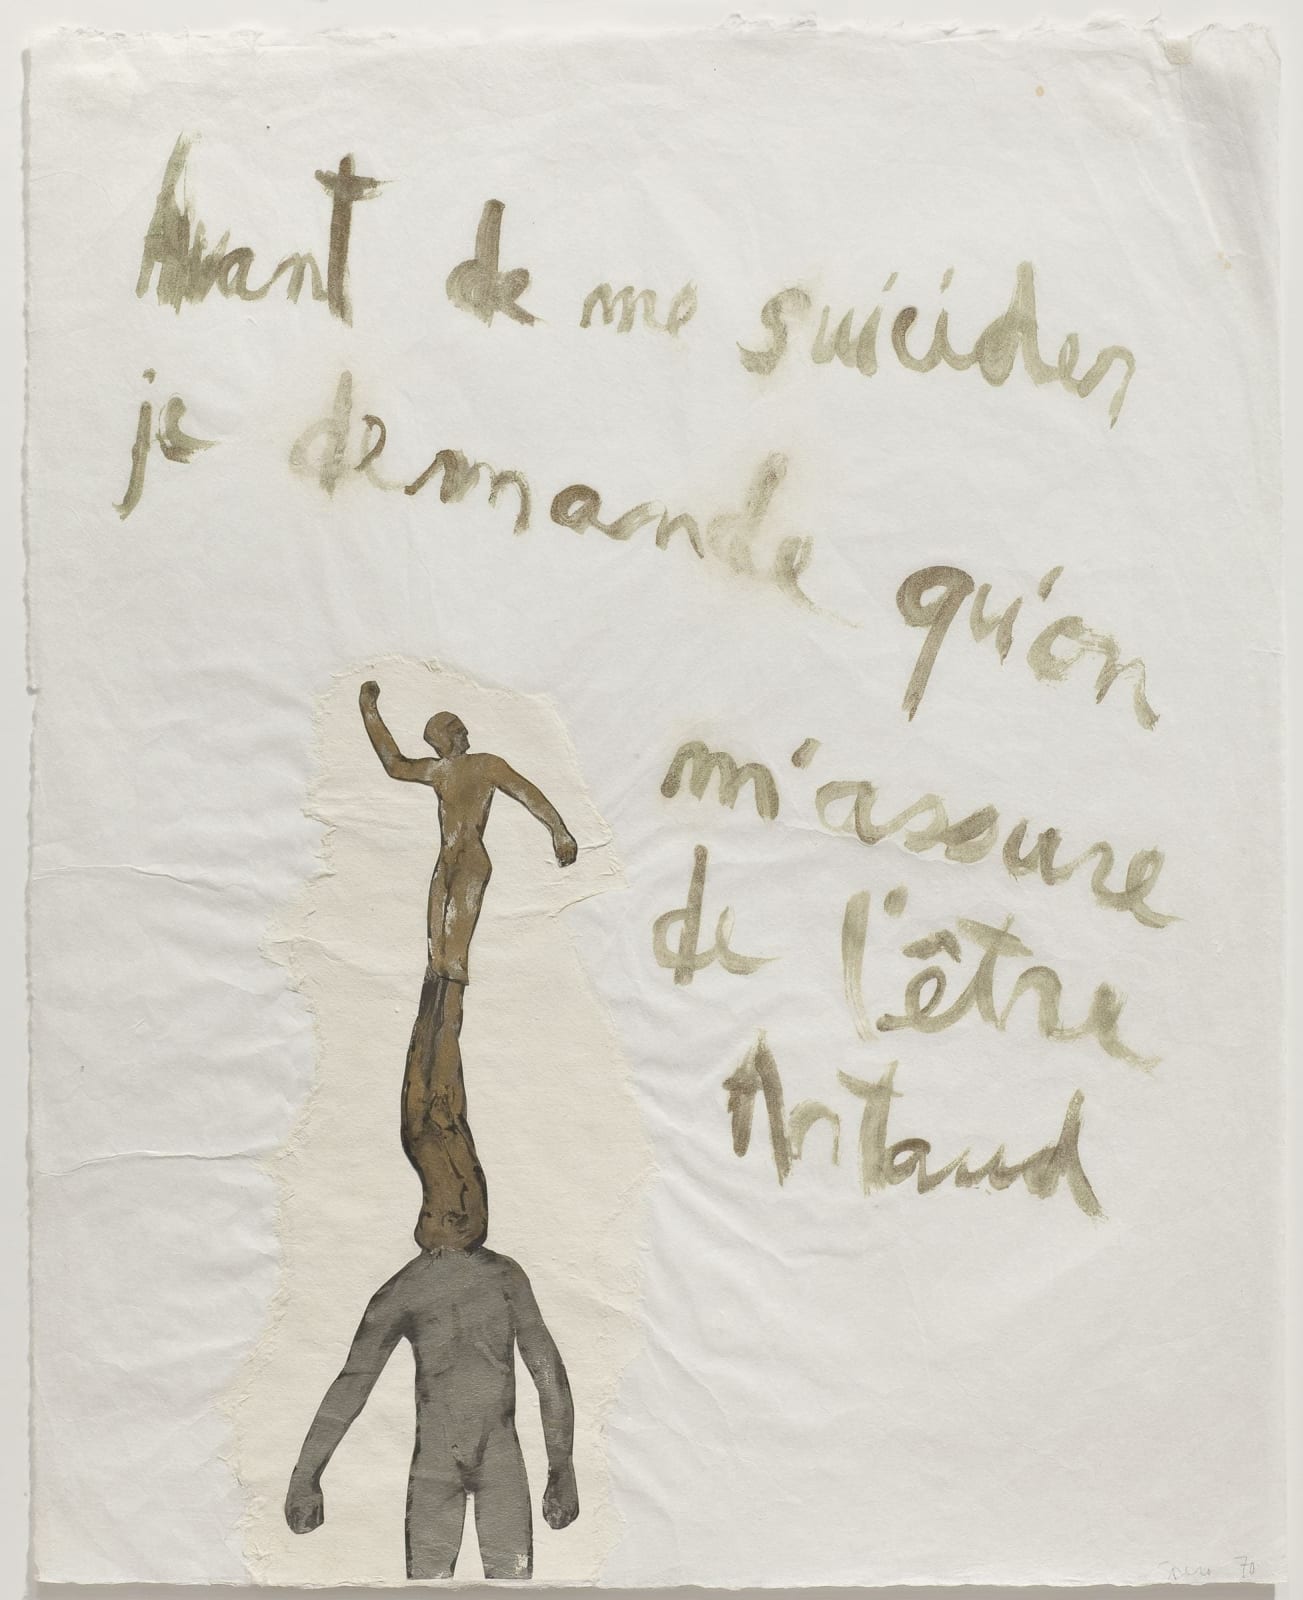 Avant de me suicider
je demande qu'on
m'assure
de l'être
Artaud
Spero 70